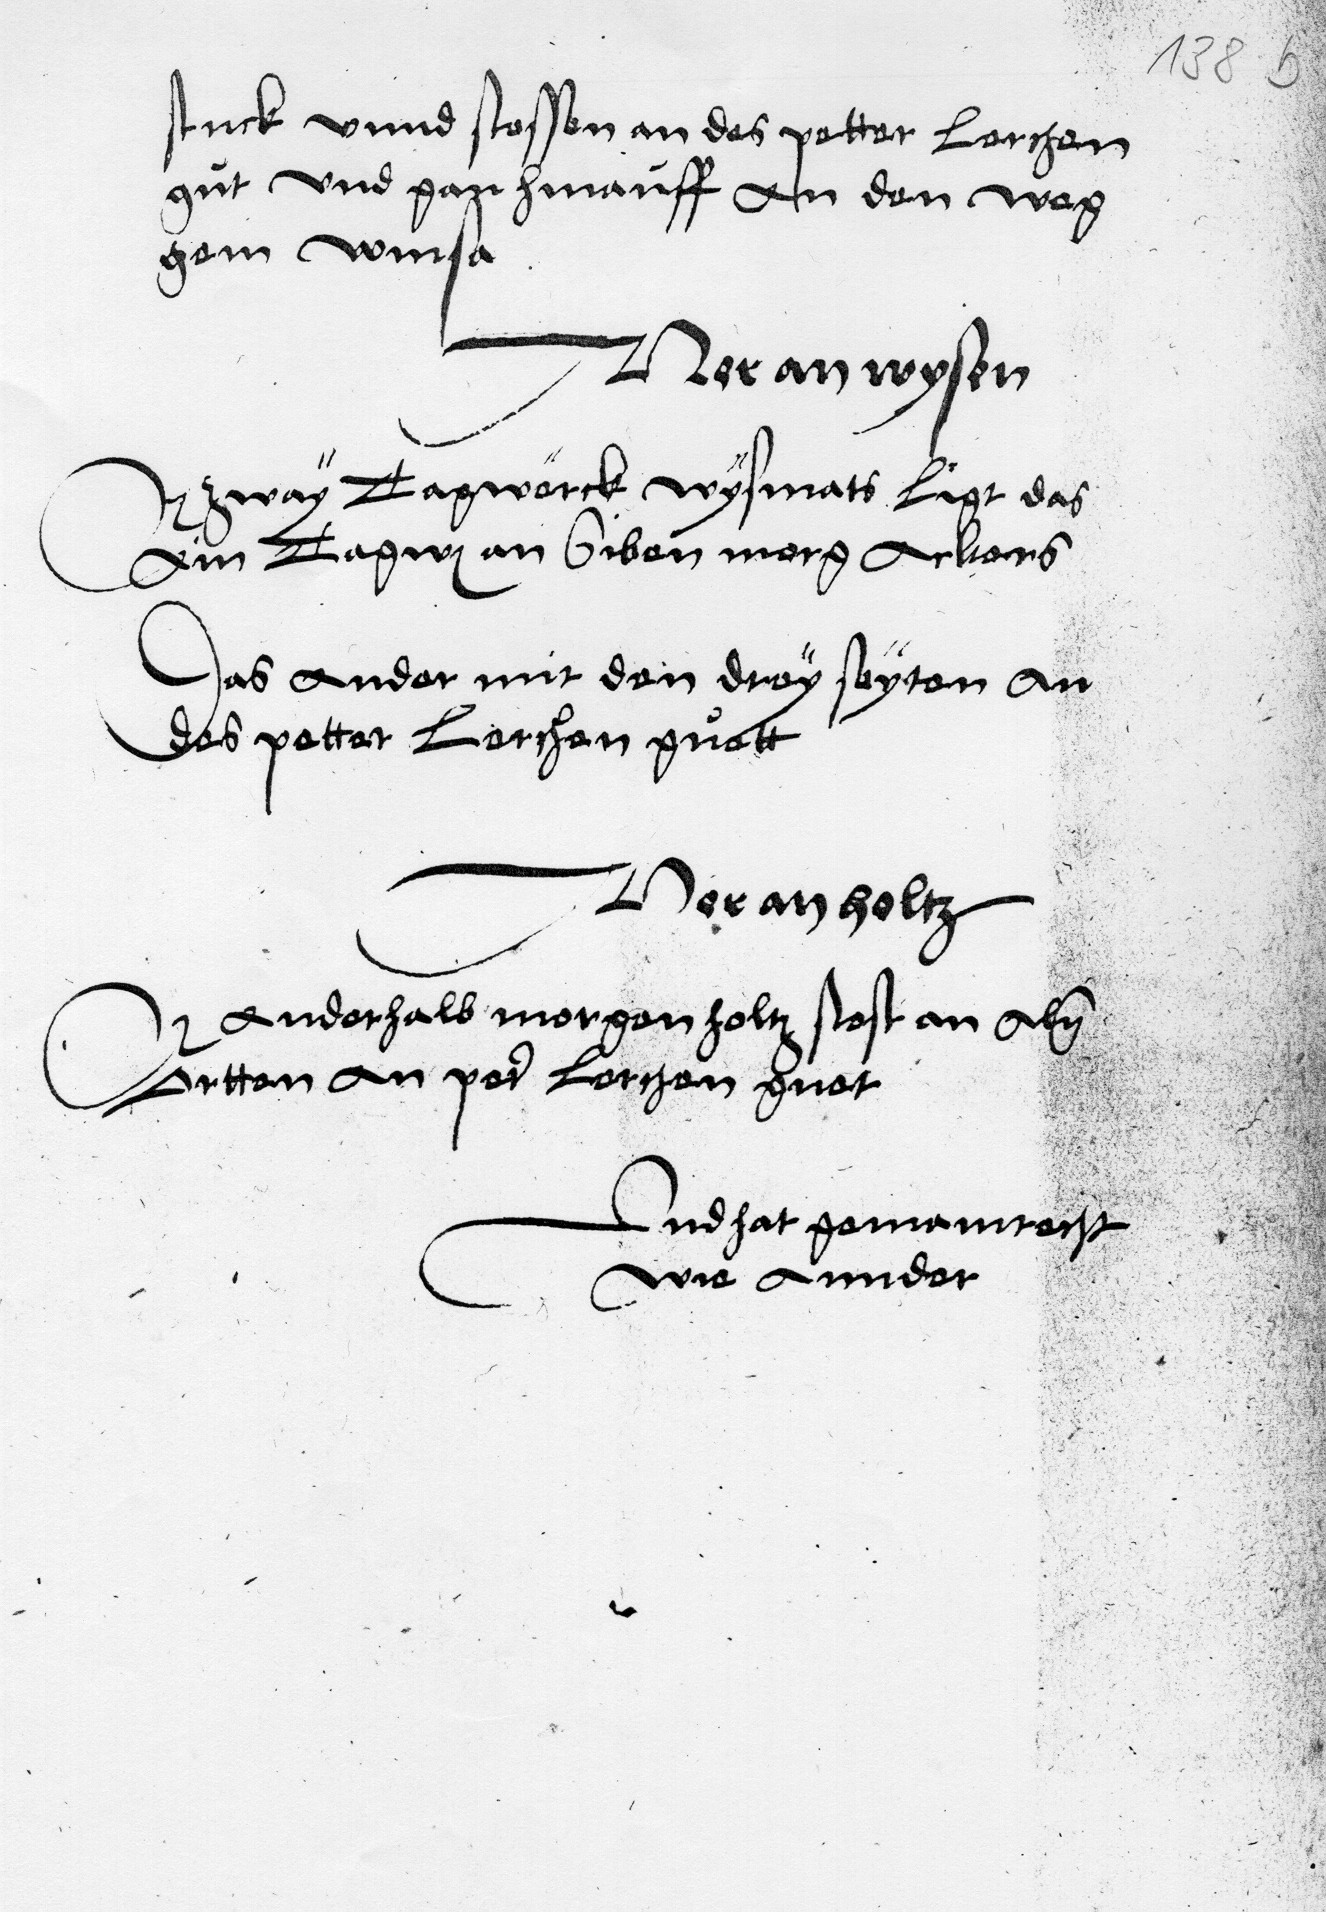 138 b
stuck vnnd stossen an des petter Lerchen
gut vnd gan hinauff an den weg
gem winsa
Mer an wysen
Zway Tagwerck wysmats Ligt das
ain Tagw an Siben morg Ackers
Das ander mit den drey seyten an
des petter Lerchen guett
Mer an holtz
Anderhalb morgen holtz stost an aln
Ortten an peter Lerchen guet
Vnd hat gemainrecht
wie annder